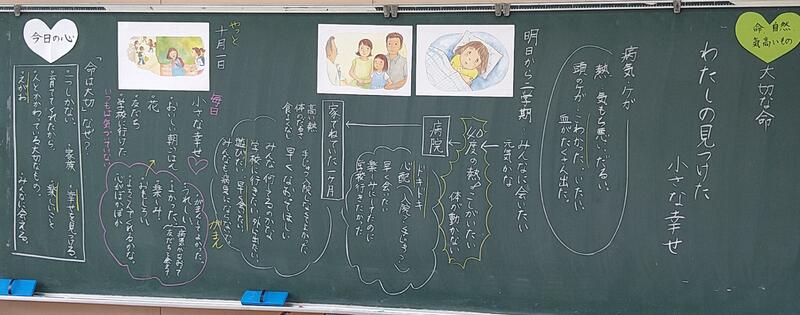 命 自然
気高いもの
大切な命
わたしの見つけた
小さな幸せ
病気・ケガ
熱、気もち悪い、だるい、
頭のケガ、こわかった、いたい、
血がたくさん出た。
明日から二学期
みんなに会いたい
元気かな
40度の熱
体が動かない
病院
ドキドキ
心配(入院?手じゅつ?)
早く会いたい
楽しみにしてたのに
学校行きたかった
家でねていた一ヶ月
高い熱
体のだるさ
食よくない
早くなおってほしい
みんな何してるのかな
学校に行きたい、外に出たい
遊びたい、早く会いたい、
がまん
やっと
十月一日
毎日
小さな幸せ
・おいしい朝ごはん
・花
・友だち
・学校に行けた
いつもは気づいてない
がまんしてよかった。
・うれしい。
・よかった。
・楽しみ。
おもしろい。
心がぽかぽか
今日の心
「命は大切」なぜ?
・一つしかない
・家族
・幸せを見つける。
・育ててくれたから
・楽しいこと
・人とかかわっている大切なもの。
・えがお
・みんなに会える。